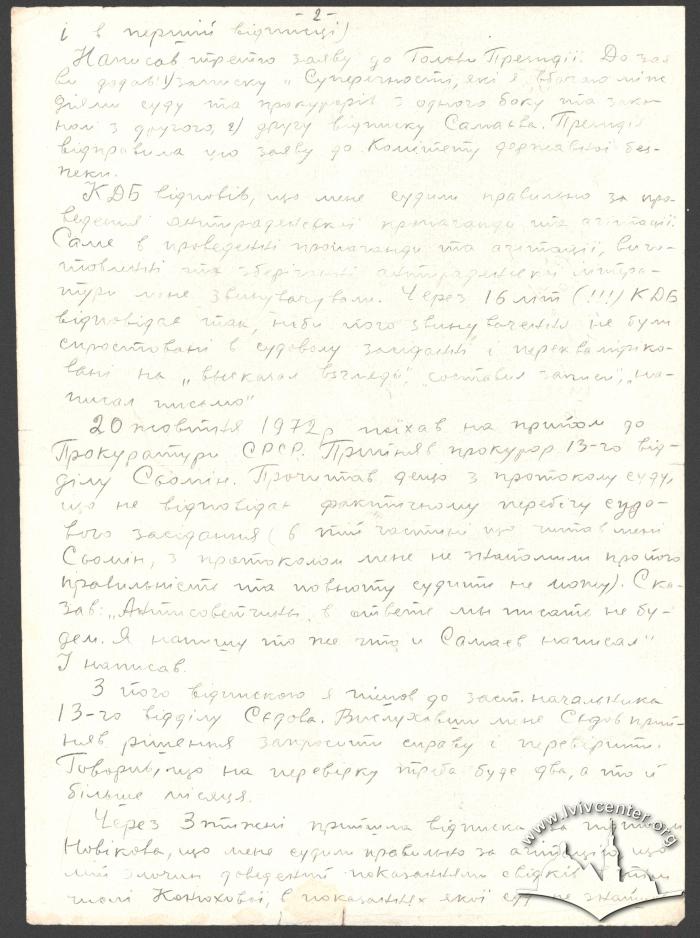 -2-
і в першій відписці)
Написав третю заяву до Голови Президії. До зая
ви додав: 1) записку „Суперечності, які я вбачаю між
діями суду та прокурорів з одного боку та зако-
ном з другого, 2) другу відписку Самаєва. Президія
відправила цю заяву до Комітету державної без-
пеки.
КДБ відповів, що мене судили правильно за про-
ведення антирадянської пропаганди та агітації.
Саме в проведенні пропаганди та агітації, виго-
товленні та зберіганні антирадянської літера-
тури мене звинувачували. Через 16 літ (!!!) КДБ
відповідає так, ніби його звинувачення не були
спростовані в судовому засіданні і перекваліфіко-
вані на „высказал взгляды", „составил записи", „на-
писал письмо"
20 жовтня 1972р поїхав на прийом до
Прокуратури СРСР. Прийняв прокурор 13-го від-
ділу Сьомін. Прочитав дещо з протоколу суду,
що не відповідає фактичному перебігу судо-
вого засідання (в тій частині що читав мені
Сьомін, з протоколом мене не знайомили про його
правильність та повноту судити не можу). Ска-
зав: „Антисоветчины в ответе мы писать не бу-
дем. Я напишу то же что и Самаев написал"
І написав.
З його відпискою я пішов до заст. начальника
13-го відділу Сєдова. Вислухавши мене Сєдов прий-
няв рішення запросити справу і перевірити.
Говорив, що на перевірку треба буде два, а то й
більше місяця.
Через 3 тижні прийшла відписка за підписом
Новікова, що мене судили правильно за агітацію що
мій злочин доведений показаннями свідків в тому
числі Конюхової, в показаннях якої суд не знай
www.lvivcenter.org